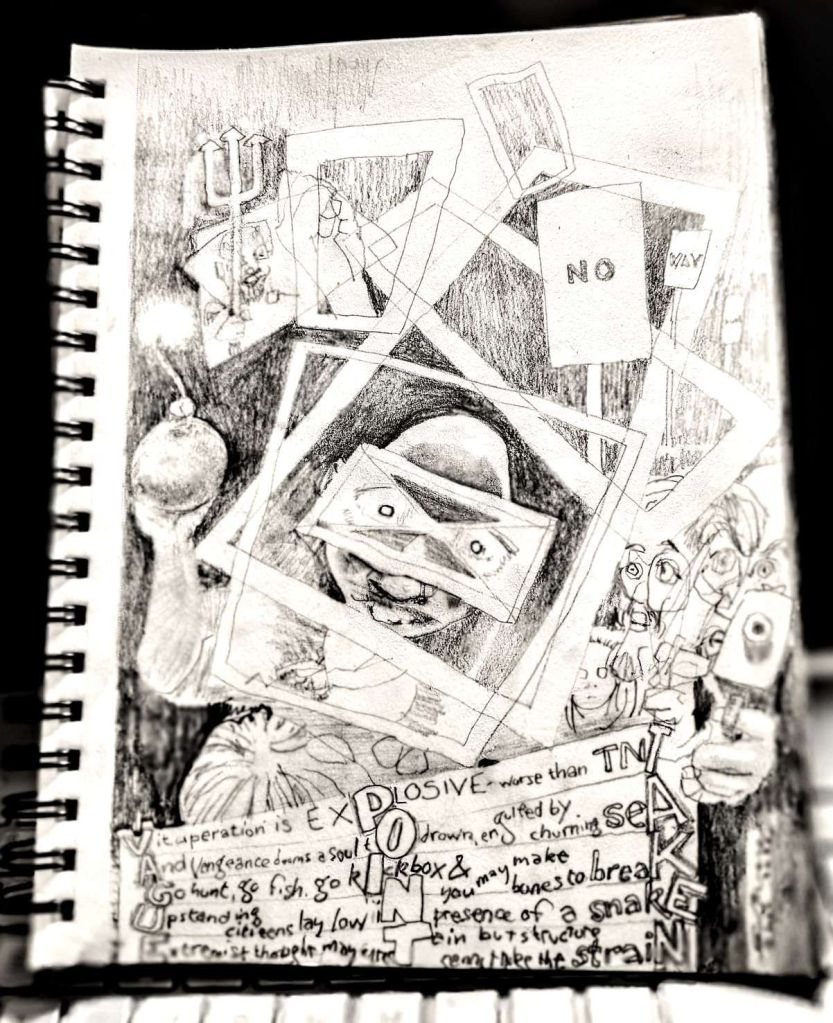 NO
WAY
Vituperation is EXPLOSIVE - worse than TNT
And vengeance dooms a soul tO drown, engulfed by churning seA
Go hunt, go fish, go kIckbox & you may make bones to breaK
Upstanding citizens lay low iN presence of a snakE
Extremist thought may enterTain but structure cannot take the straiN